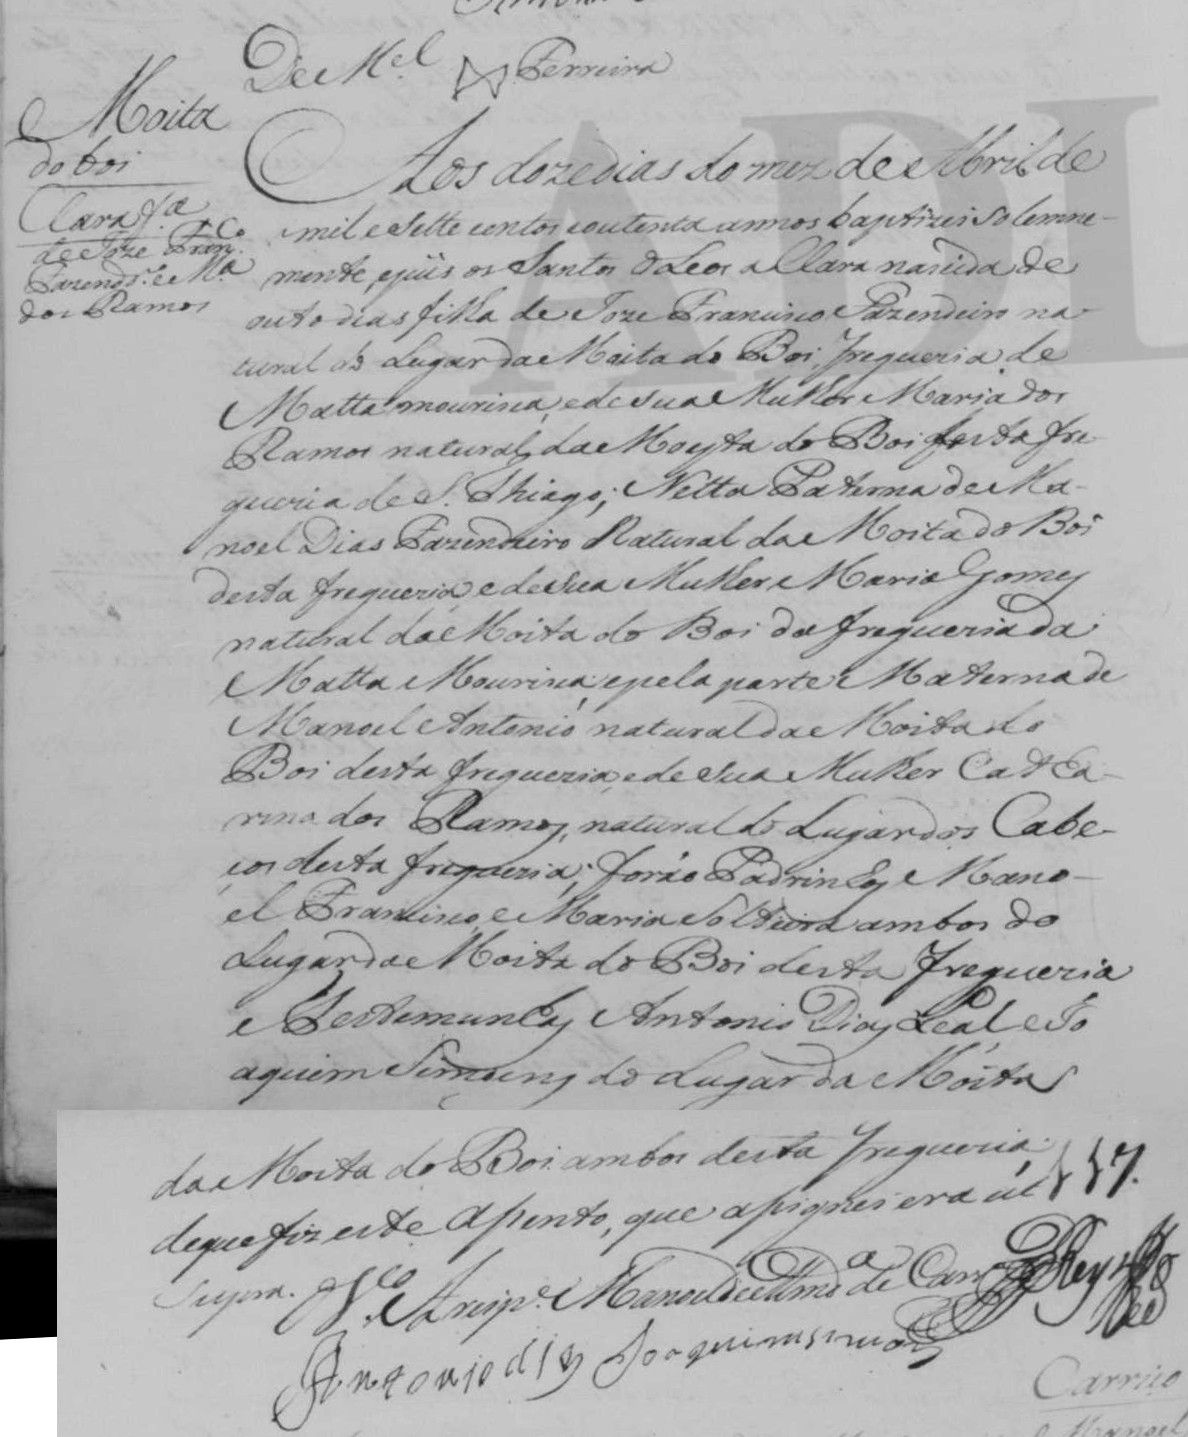 De M.el Ferreira
Moita
do boi
Clara f.a
de Joze Fran.co
Fazend.ro e M.a
dos Ramos
Aos doze dias do mez de Abril de
mil e Sette centos e outenta annos baptizei Solemne-
mente, e pûs os Santos Oleos a Clara nascida de
outo dias filha de Joze Francisco Fazendeiro na-
tural do Lugar da Moita do Boi, freguezia de
Matta mourisca, e de sua Mulher Maria dos
Ramos natural da Moyta do Boi desta fre-
guezia de S. Thiago; Netta Paterna de Ma-
noel Dias Fazendeiro Natural da Moita do Boi
desta freguezia, e de sua Mulher Maria Gomes
natural da Moita do Boi da freguezia da
Matta Mourisca, e pela parte Materna de
Manoel Antonio natural da Moita do
Boi desta freguezia, e de sua Mulher Catha-
rina dos Ramos, natural do Lugar dos Cabe-
ços desta freguezia; forão Padrinhos Mano-
el Francisco, e Maria Solteira ambos do
Lugar da Moita do Boi desta Freguezia
e Testemunhas Antonio Dias Leal e Jo
aquim Simoens do Lugar da Moita
da Moita do Boi ambos desta freguezia
de que fiz este aSento, que aSignei era ut
Supra. O V.co Manoel de Alm.da de
Antonio dias Joaquim simois
Carriço
Manoel
ADL